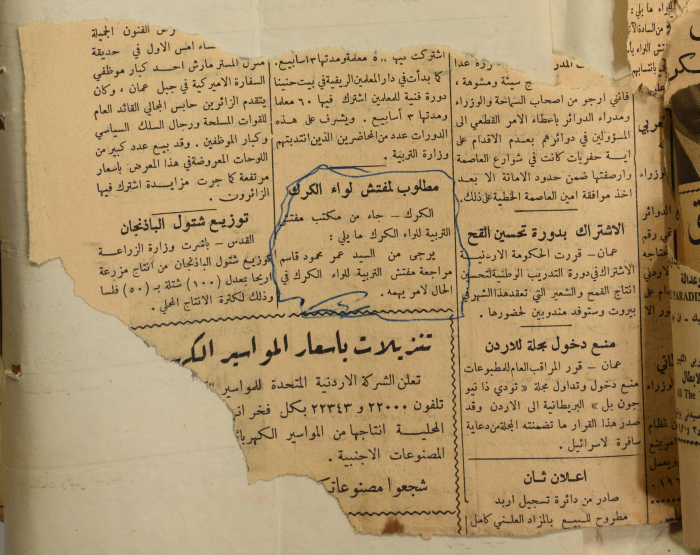 فانني ارجو من اصحاب السماحة والوزراء
ومدراء الدوائر باعطاء الامر القطعي الى
المسؤولين في دوائرهم بعدم الاقدام على
اية حفريات كانت في شوارع العاصمة
وارصفتها ضمن حدود الامانة الا بعد
اخذ موافقة امين العاصمة الخطية على ذلك.
الاشتراك بدورة تحسين القمح
عمان – قررت الحكومة الاردنية
الاشتراك في دورة التدريب الوطنية لتحسين
انتاج القمح والشعير التي تعقد هذا الشهر في
بيروت وستوفد مندوبين لحضورها .
منع دخول مجلة للاردن
عمان – قرر المراقب العام للمطبوعات
منع دخول وتداول مجلة « تودي ذا نيو
جون بل » البريطانية الى الاردن وقد
صدر هذا القرار ما تضمنته المجلة من دعاية
سافرة لاسرائيل .
اعلان ثان
صادر من دائرة تسجيل اربد
مطروح للبيع بالمزاد العلني كامل
اشتركت فيها ٥٠٠ معلمة ومدتها ٣ اسابيع .
كما بدأت في دار المعلمين الريفية في بيت حنينا
دورة فنية للمعلمين اشترك فيها ٦٠ معلما
ومدتها ٣ أسابيع . ويشرف على هذه
الدورات عدد من المحاضرين الذين انتدبتهم
وزارة التربية .
مطلوب لمفتش لواء الكرك
الكرك – جاء من مكتب مفتش
التربية للواء الكرك ما يلي :
يرجى من السيد عمر محمود قاسم
مراجعة مفتش التربية للواء الكرك في
الحال لامر يهمه .
الفنون الجميلة
مساء امس الاول في حديقة
منزل المستر مارش احد كبار موظفي
السفارة الاميركية في جبل عمان ، وكان
يتقدم الزائرين حابس المجالي القائد العام
للقوات المسلحة ورجال السلك السياسي
وكبار الموظفين . وقد بيع عدد كبير من
اللوحات المعروضة في هذا المعرض باسعار
مرتفعة كما جرت مزايدة اشترك فيها
الزائرون .
توزيع شتول الباذنجان
القدس – باشرت وزارة الزراعة
توزيع شتول الباذنجان من انتاج مزرعة
اريحا بمعدل (١٠٠) شتلة بـ (٥٠) فلسا
وذلك لكثرة الانتاج المحلي .
تنزيلات باسعار المواسير الكهر
تعلن الشركة الاردنية المتحدة للمواسير
تلفون ٢٢٠٠٠ و ٢٢٣٤٣ بكل فخر
المحلية انتاجها من المواسير الكهربا
المصنوعات الاجنبية .
شجعوا مصنوعات